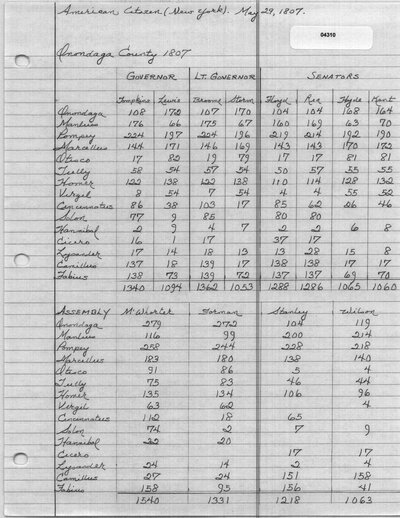 American Citizen (New York). May 29, 1807.
04310
Onondaga County 1807
GOVERNOR LT. GOVERNOR SENATORS
Tompkins Lewis Broome Storm Floyd Rea Hyde Kent
Onondaga 108 170 107 170 104 104 168 164
Manlius 176 66 175 67 160 169 63 70
Pompey 224 197 224 196 219 214 192 190
Marcellus 144 171 146 169 143 143 170 172
Otisco 17 82 19 79 17 17 81 81
Tully 58 54 57 54 50 57 55 55
Homer 122 138 122 138 110 114 128 132
Virgil 8 54 7 54 4 4 55 52
Cincinnatus 86 38 103 17 85 62 26 46
Solon 77 9 85 80 80
Hannibal 2 9 4 7 2 2 6 8
Cicero 16 1 17 37 17
Lysander 17 14 18 13 13 28 15 8
Camillus 137 18 139 17 138 138 17 17
Fabius 138 73 139 72 137 137 69 70
1340 1094 1362 1053 1288 1286 1065 1060
ASSEMBLY McWhorter Forman Stanley Wilson
Onondaga 279 272 104 119
Manlius 116 99 200 214
Pompey 258 244 228 218
Marcellus 183 180 138 140
Otisco 91 86 5 4
Tully 75 83 46 44
Homer 135 134 106 96
Virgil 63 62 4
Cincinnatus 112 18 65
Solon 74 2 7 9
Hannibal 22 20
Cicero 17 17
Lysander 24 14 2 4
Camillus 27 24 151 158
Fabius 158 95 156 41
1540 1331 1218 1063